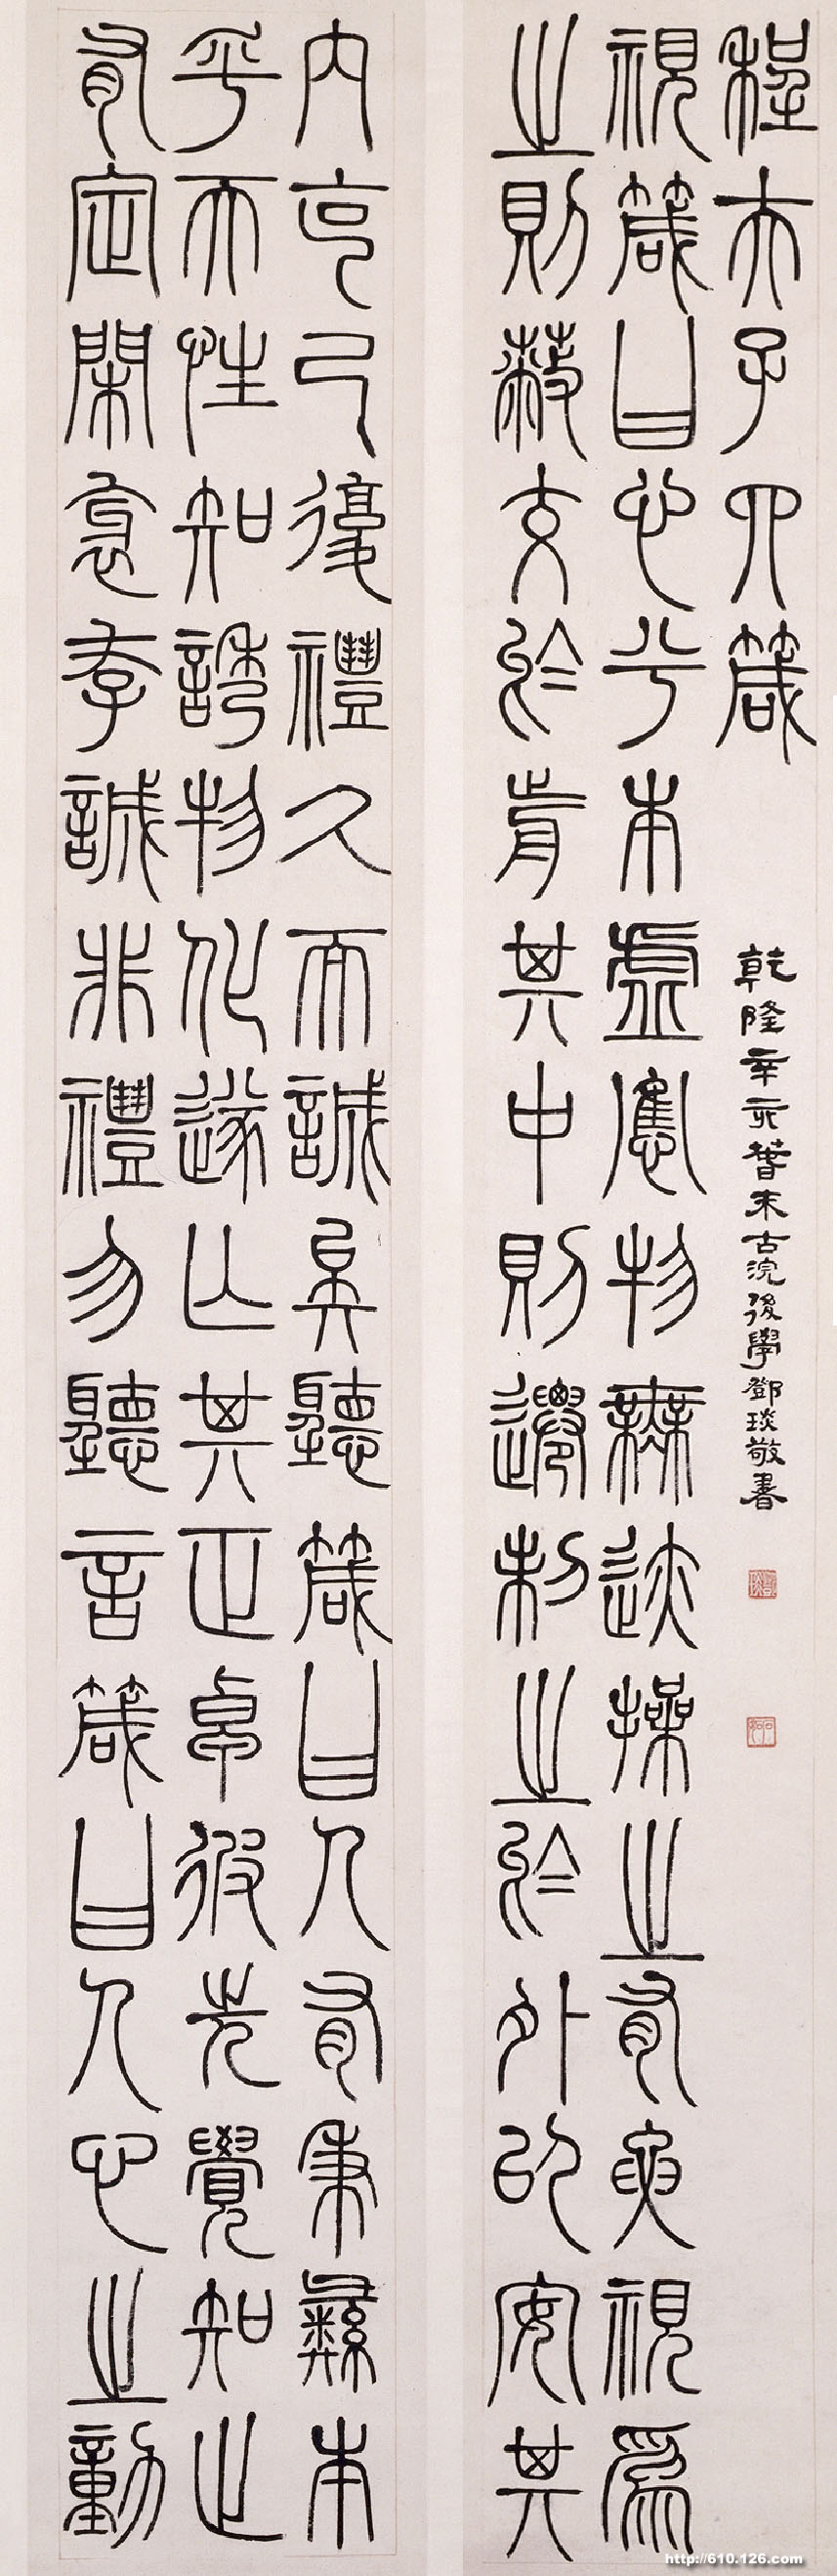 程夫子四箴
乾隆辛亥春末古浣後學鄧琰敬書
視箴曰心兮本虛應物無迹操之有要視爲
之則蔽交於前其中則遷制之於外以安其
內克己復禮久而誠矣聽箴曰人有秉彝本
乎天性知誘物化遂亡其正卓彼先覺知止
有定閑衺存誠非禮勿聽言箴曰人心之動
http://610.126.com